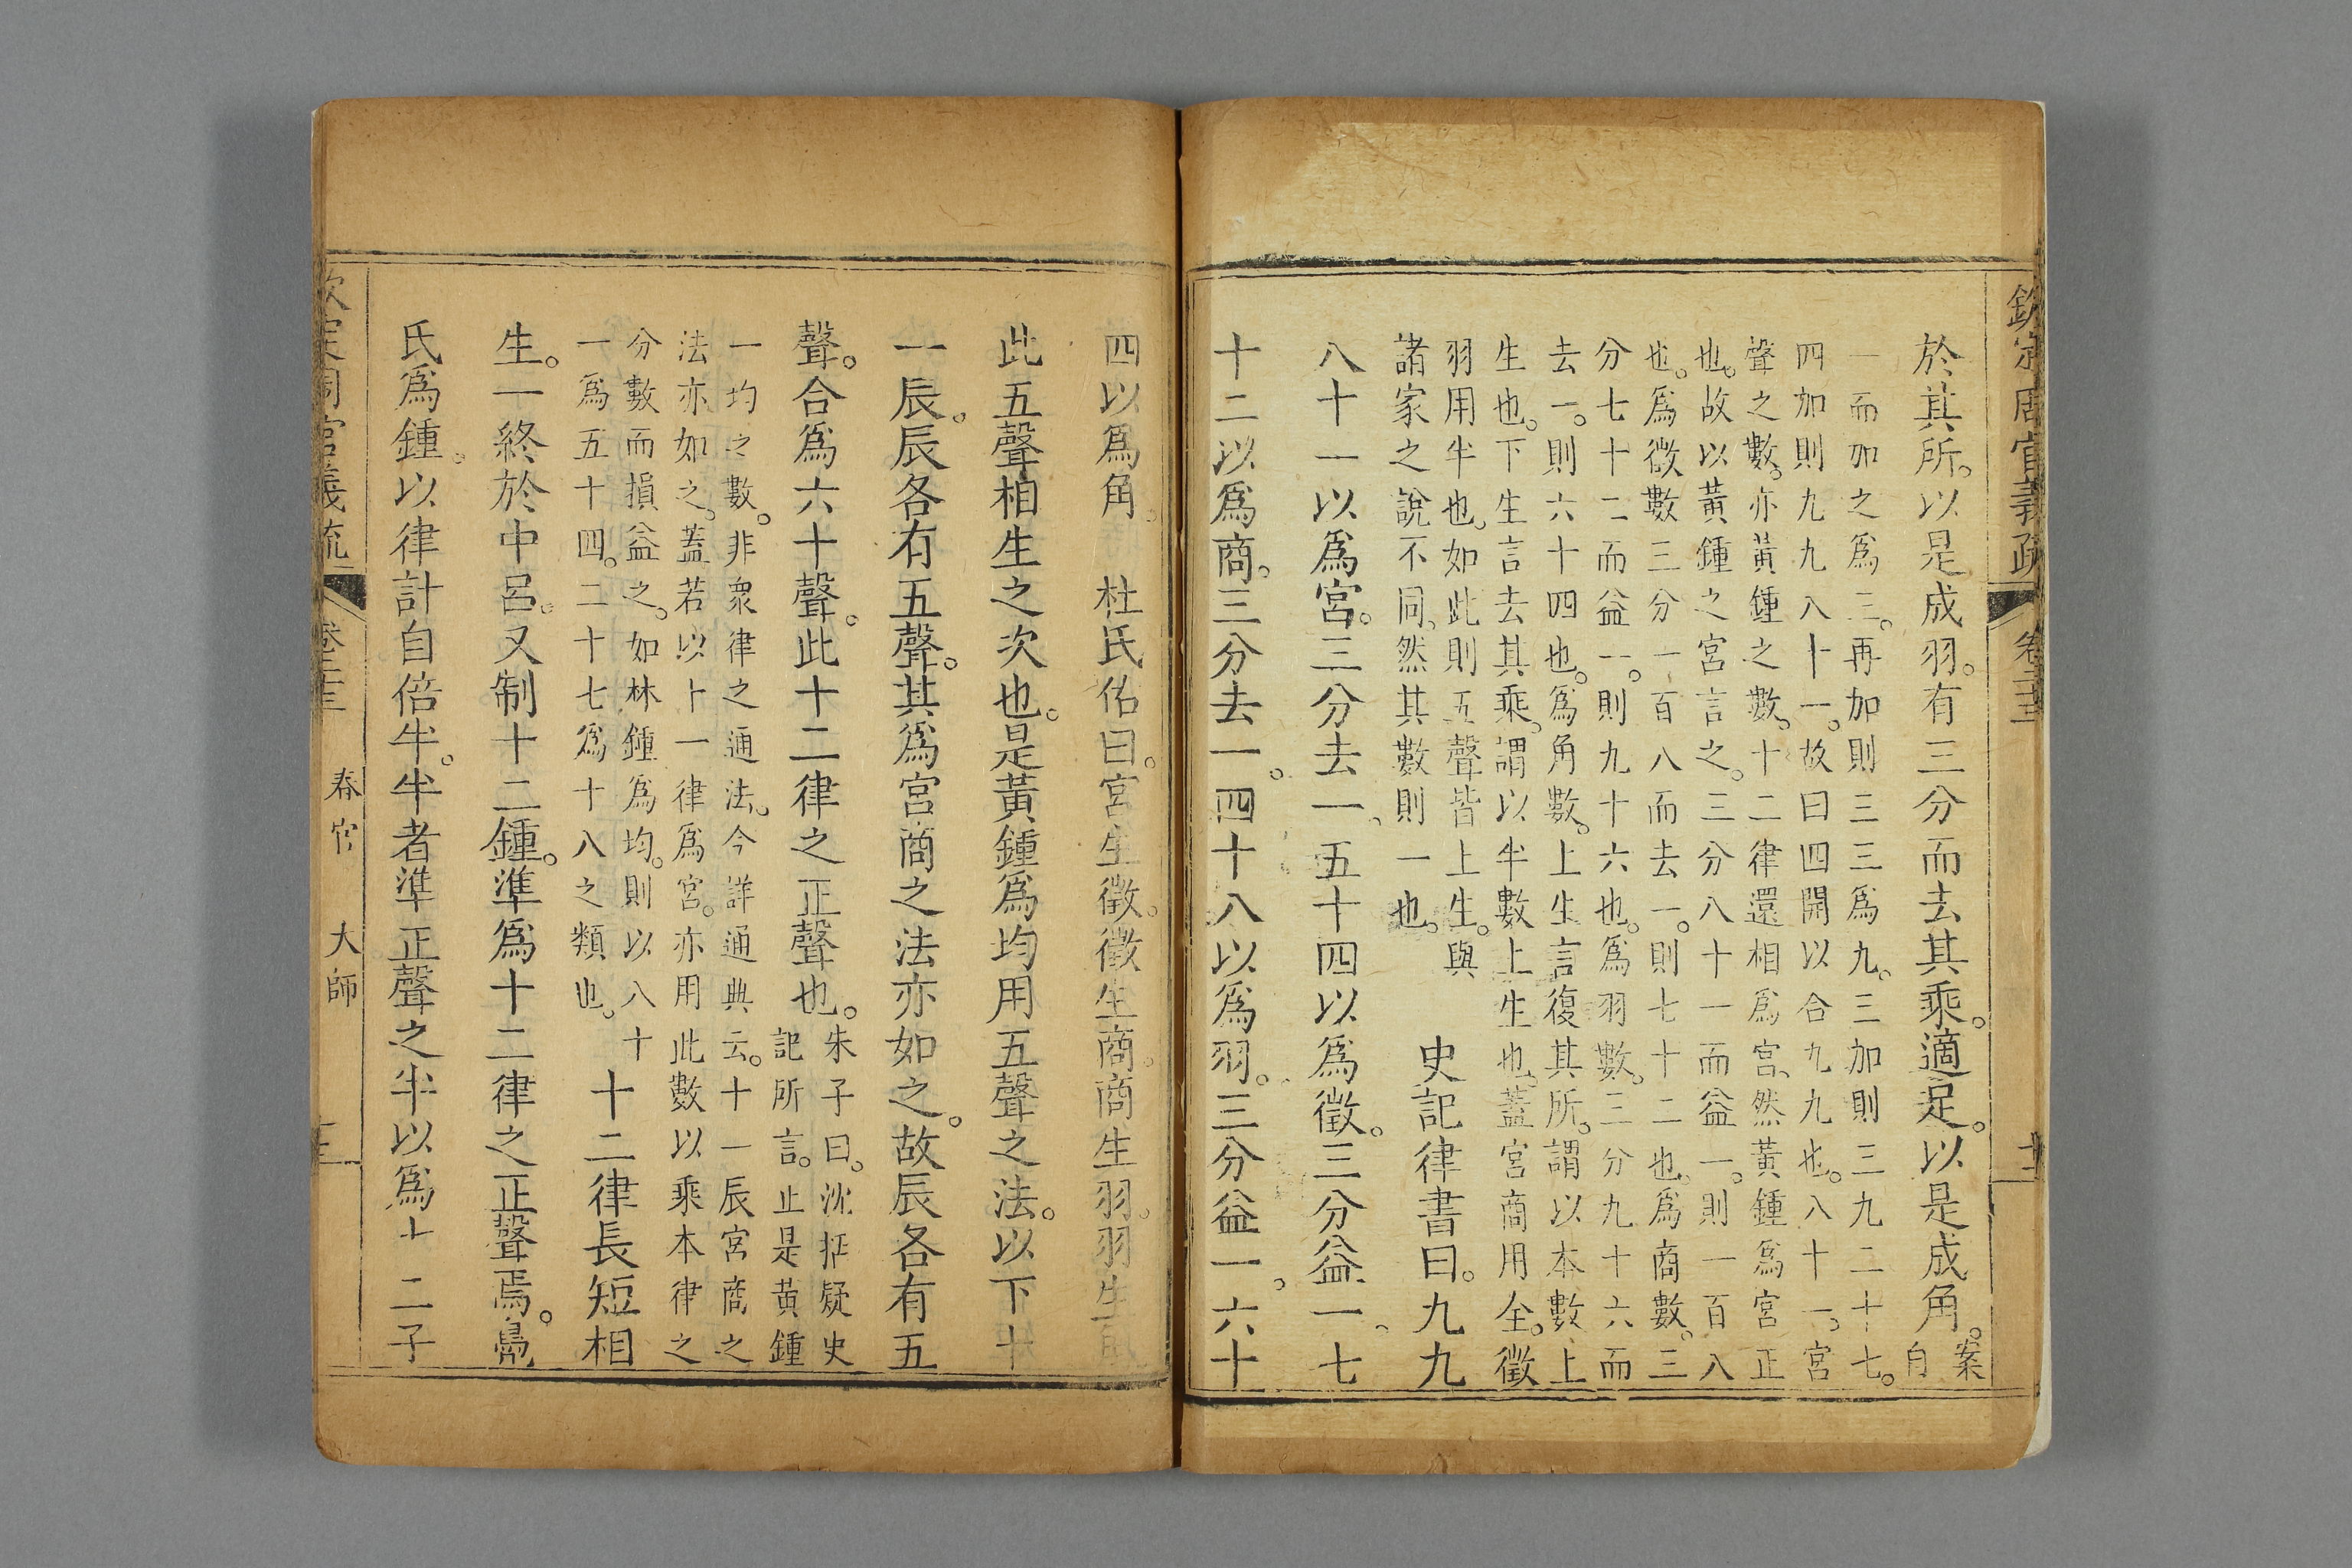 欽定周官義疏 卷二十三
於其所。以是成羽。有三分而去其乘。適足。以是成角。案自
一而加之為三。再加則三三爲九。三加則三九二十七。
四加則九九八十一。故曰四開以合九九九也。八十一。宮
聲之數。亦黃鍾之數。十二律還相爲宮。然黃鍾爲宮正
也。故以黃鍾之宮言之。三分八十一而益一。則一百八
也。爲徵數三分一百八而去一。則七十二也。爲商數。三
分七十二而益一。則九十六也。爲羽數。三分九十六而
去一。則六十四也。爲角數。上生言復其所。謂以本數上
生也。下生言去其乘。謂以半數上生也。蓋宮商用全。徵
羽用半也。如此則五聲皆上生。與
諸家之說不同。然其數則一也。
史記律書曰。九九
八十一以爲宮。三分去一、五十四以爲徵。三分益一、七
十二以爲商。三分去一。四十八以爲羽。三分益一。六十
四以爲角。 杜氏佑曰。宮生徵。徵生商。商生羽。羽生角
此五聲相生之次也。是黃鍾爲均用五聲之法。以下十
一辰。辰各有五聲。其爲宮商之法亦如之。故辰各有五
聲。合爲六十聲。此十二律之正聲也。朱子曰。沈括疑史
記所言。止是黃鍾
一均之數。非衆律之通法。今詳通典云。十一辰宮商之
法亦如之。蓋若以十一律爲宮。亦用此數以乘本律之
分數而損益之。如林鍾爲均。則以八十
一爲五十四。二十七爲十八之類也。
十二律長短相
生。一終於中呂。又制十二鍾。準爲十二律之正聲焉。鳧
氏爲鍾。以律計自倍半。半者準正聲之半以爲十二子
春官 大師